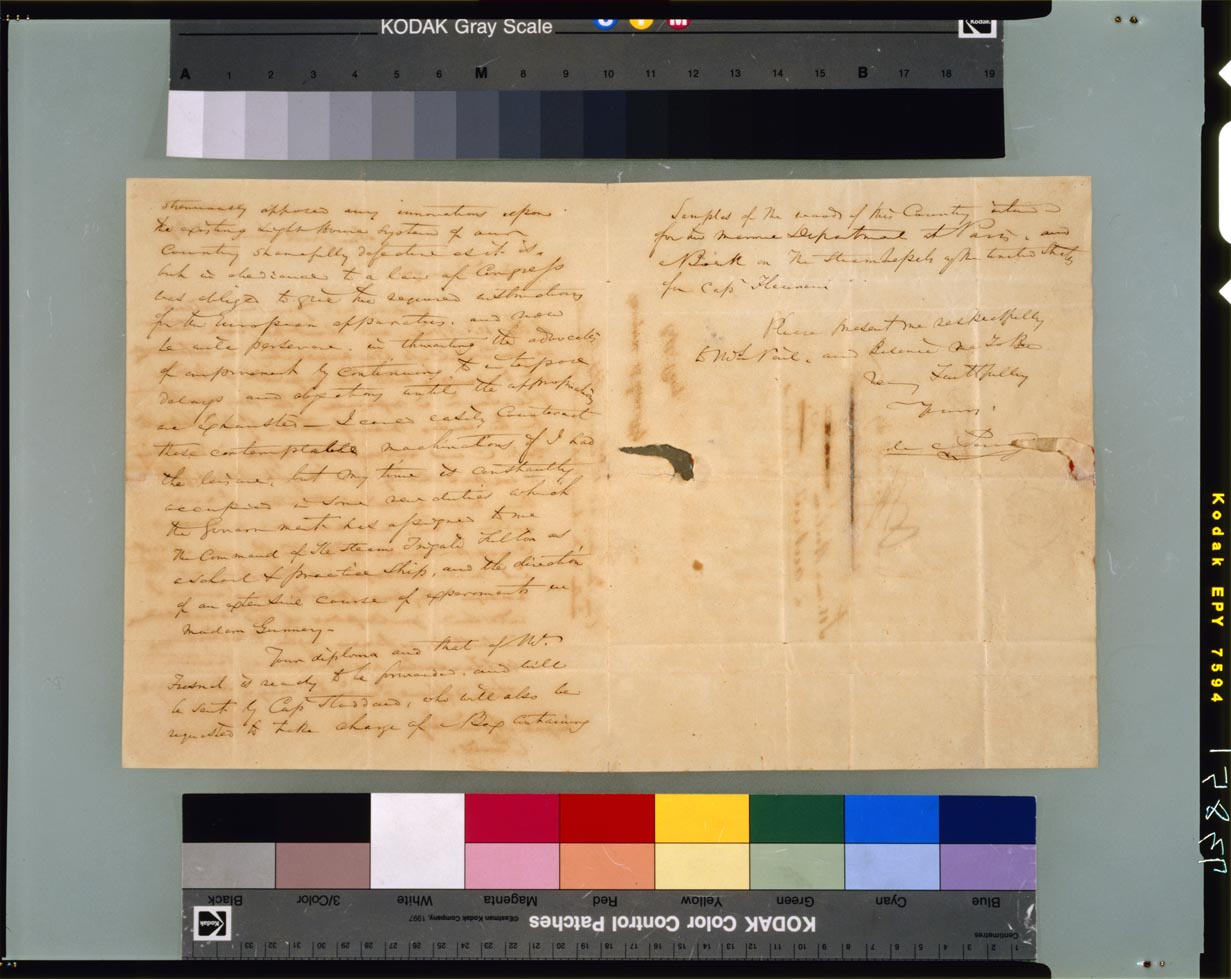 KODAK Gray Scale
C Y M
Kodak
A 1 2 3 4 5 6 M 8 9 10 11 12 13 14 15 B 17 18 19
strenuously opposed any innovations upon
the existing Light House System of our
Country shamefully defective as it is,
but in obedience to a law of Congress
was obliged to give the required instructions
for the European apparatus. and now
he will persevere in thwarting the advocates
of improvement by continuing to interpose
delays and objections until the appropriations
are exhausted — I could easily counteract
these contemptable machinations if I had
the leisure, but my time is constantly
occupied in some new duties which
the Government has assigned to me
the Command of the Steam Frigate Fulton as
a School & practice Ship, and the direction
of an extensive course of experiments in
Modern Gunnery —
Your diploma and that of Mr
Fresnel is ready to be forwarded, and will
be sent by Capt Stoddard, who will also be
requested to take charge of a Box containing
Samples of the woods of this Country
for the Marine Department at Paris, and
a Book on the Steam Vessels of the United States
for Capt
Please present me respectfully
to and Believe me To Be
Very Faithfully
Yours
Kodak EPY 7594
Black 3/Color White Magenta Red Yellow Green Cyan Blue
Kodak
©Eastman Kodak Company, 1997
KODAK Color Control Patches
Centimetres
1 2 3 4 5 6 7 8 9 10 11 12 13 14 15 16 17 18 19 20 21 22 23 24 25 26 27 28 29 30 31 32 33